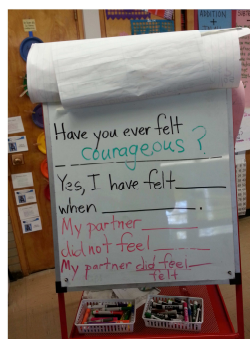 ADDITION
Have you ever felt
courageous?
Yes, I have felt____
when __________.
My partner ______
did not feel ____
My partner did feel __
felt